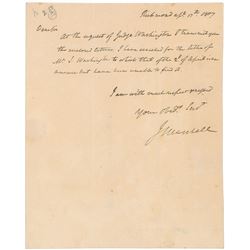 Richmond Apl. 17th 1807
Dear Sir
At the request of Judge Washington I transmit you
the enclosed letters. I have searched for the letter of
Mr. J. Washington to which that of the 2d. of April is an
answer but have been unable to find it.
I am with much respect
Your Obt. Servt
J Marshall